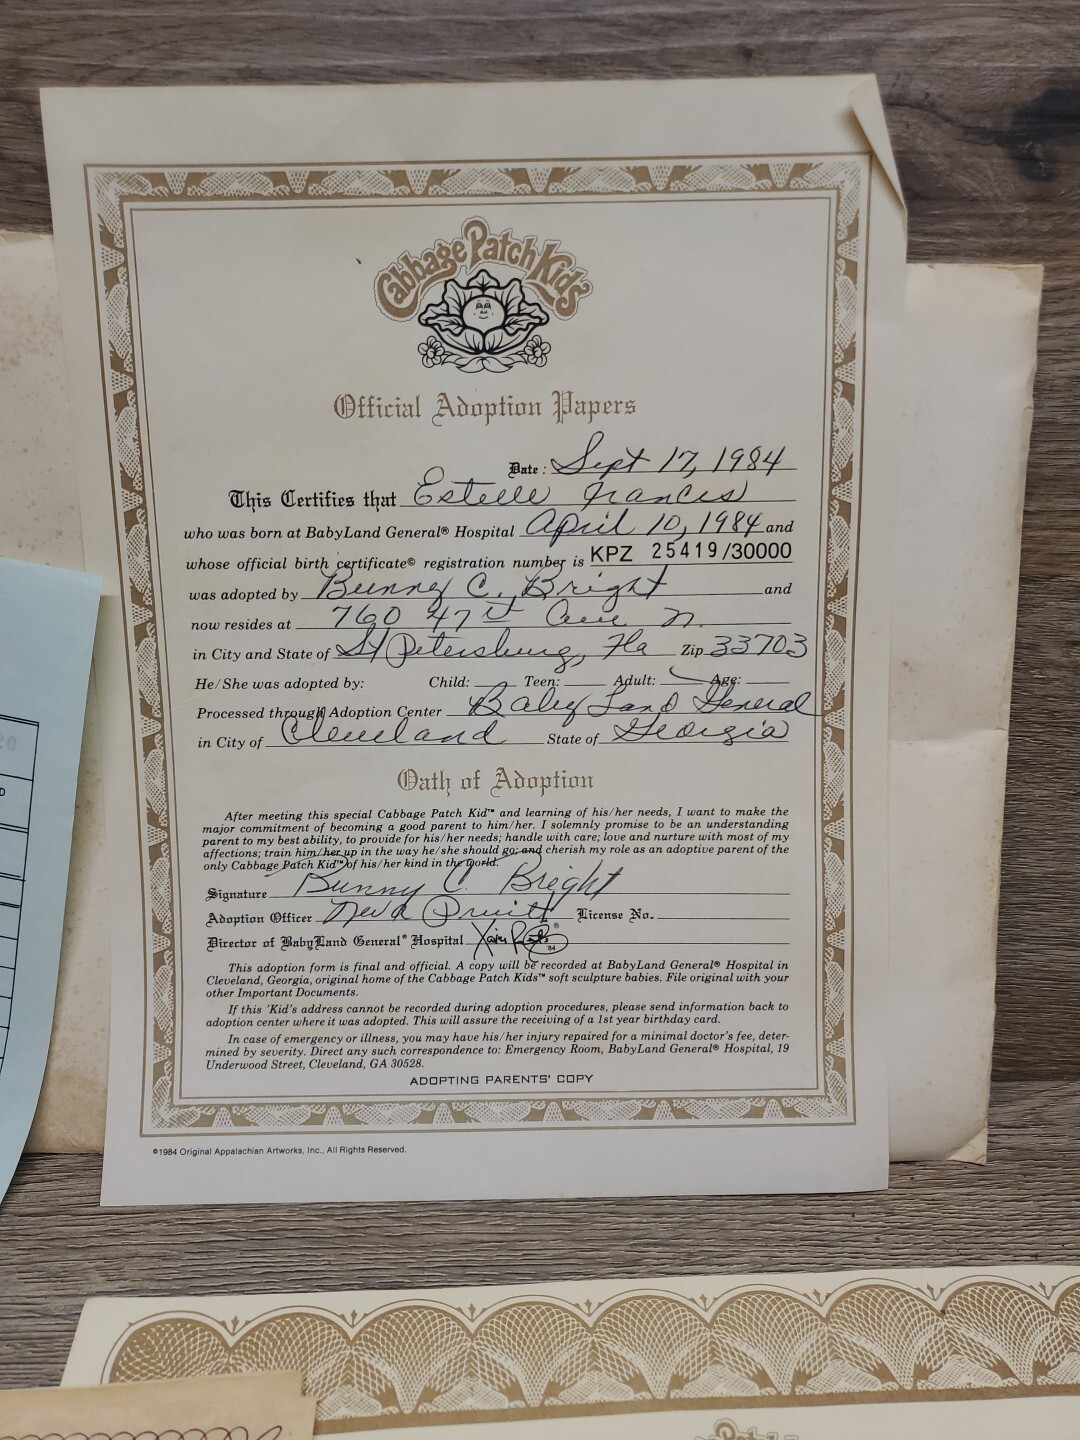 Cabbage Patch Kids
Official Adoption Papers
Date: Sept 17, 1984
This Certifies that Estelle Francis
who was born at BabyLand General® Hospital April 10, 1984 and
whose official birth certificate© registration number is KPZ 25419/30000
was adopted by Bunny C. Bright and
now resides at 760 47th Ave N.
in City and State of St Petersburg, Fla Zip 33703
He/She was adopted by: Child: Teen: Adult: Age:
Processed through Adoption Center Baby Land General
in City of Cleveland State of Georgia
Oath of Adoption
After meeting this special Cabbage Patch Kid™ and learning of his/her needs, I want to make the
major commitment of becoming a good parent to him/her. I solemnly promise to be an understanding
parent to my best ability, to provide for his/her needs; handle with care; love and nurture with most of my
affections; train him/her up in the way he/she should go; and cherish my role as an adoptive parent of the
only Cabbage Patch Kid™ of his/her kind in the world.
Signature Bunny C. Bright
Adoption Officer Neva Pruitt License No.
Director of BabyLand General® Hospital
This adoption form is final and official. A copy will be recorded at BabyLand General® Hospital in
Cleveland, Georgia, original home of the Cabbage Patch Kids™ soft sculpture babies. File original with your
other Important Documents.
If this 'Kid's address cannot be recorded during adoption procedures, please send information back to
adoption center where it was adopted. This will assure the receiving of a 1st year birthday card.
In case of emergency or illness, you may have his/her injury repaired for a minimal doctor's fee, deter-
mined by severity. Direct any such correspondence to: Emergency Room, BabyLand General® Hospital, 19
Underwood Street, Cleveland, GA 30528.
ADOPTING PARENTS' COPY
©1984 Original Appalachian Artworks, Inc., All Rights Reserved.